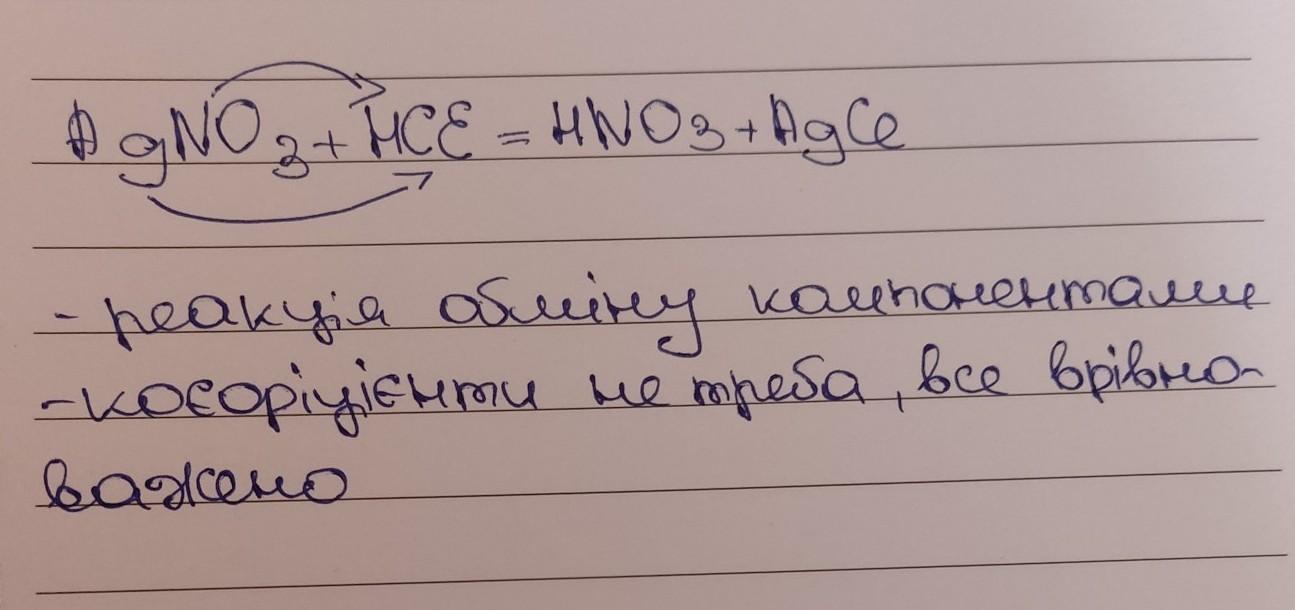 AgNO3 + HCl = HNO3 + AgCl
- реакція обміну компонентами
- коефіцієнти не треба, все врівно-
важено